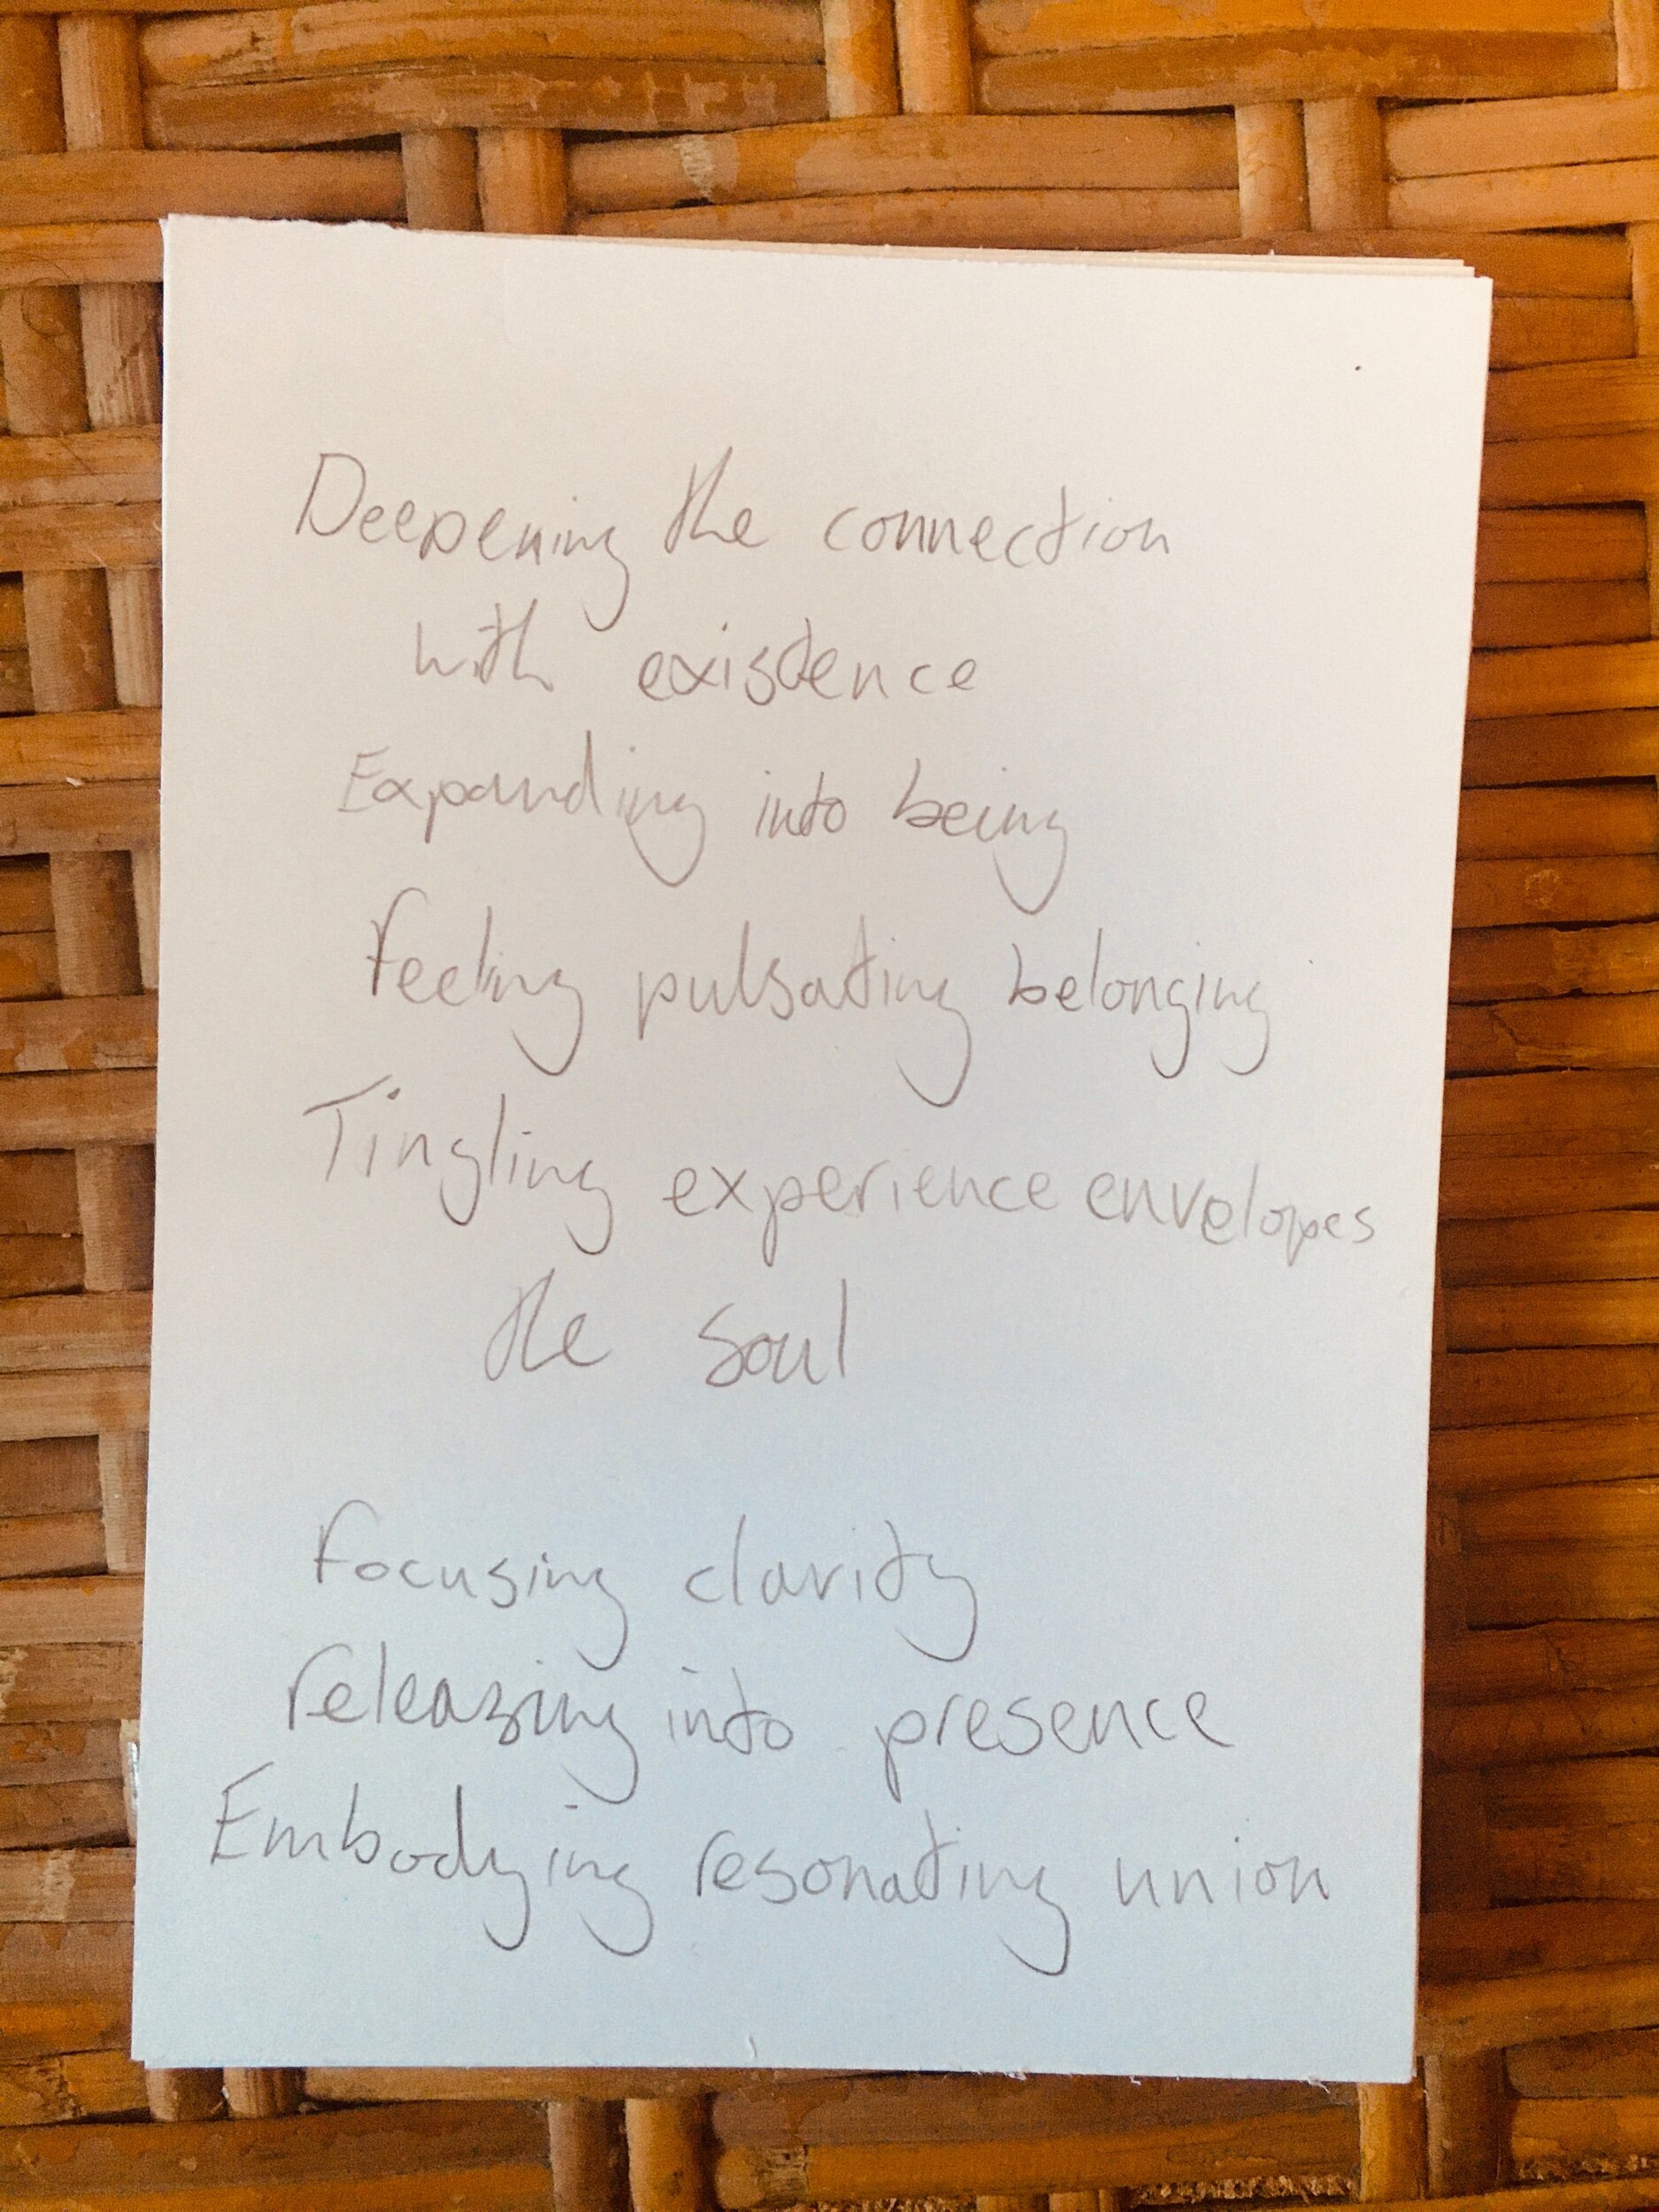 Deepening the connection
with existence
Expanding into being
Feeling pulsating belonging
Tingling experience envelopes
the soul
Focusing clarity
releasing into presence
Embodying resonating union